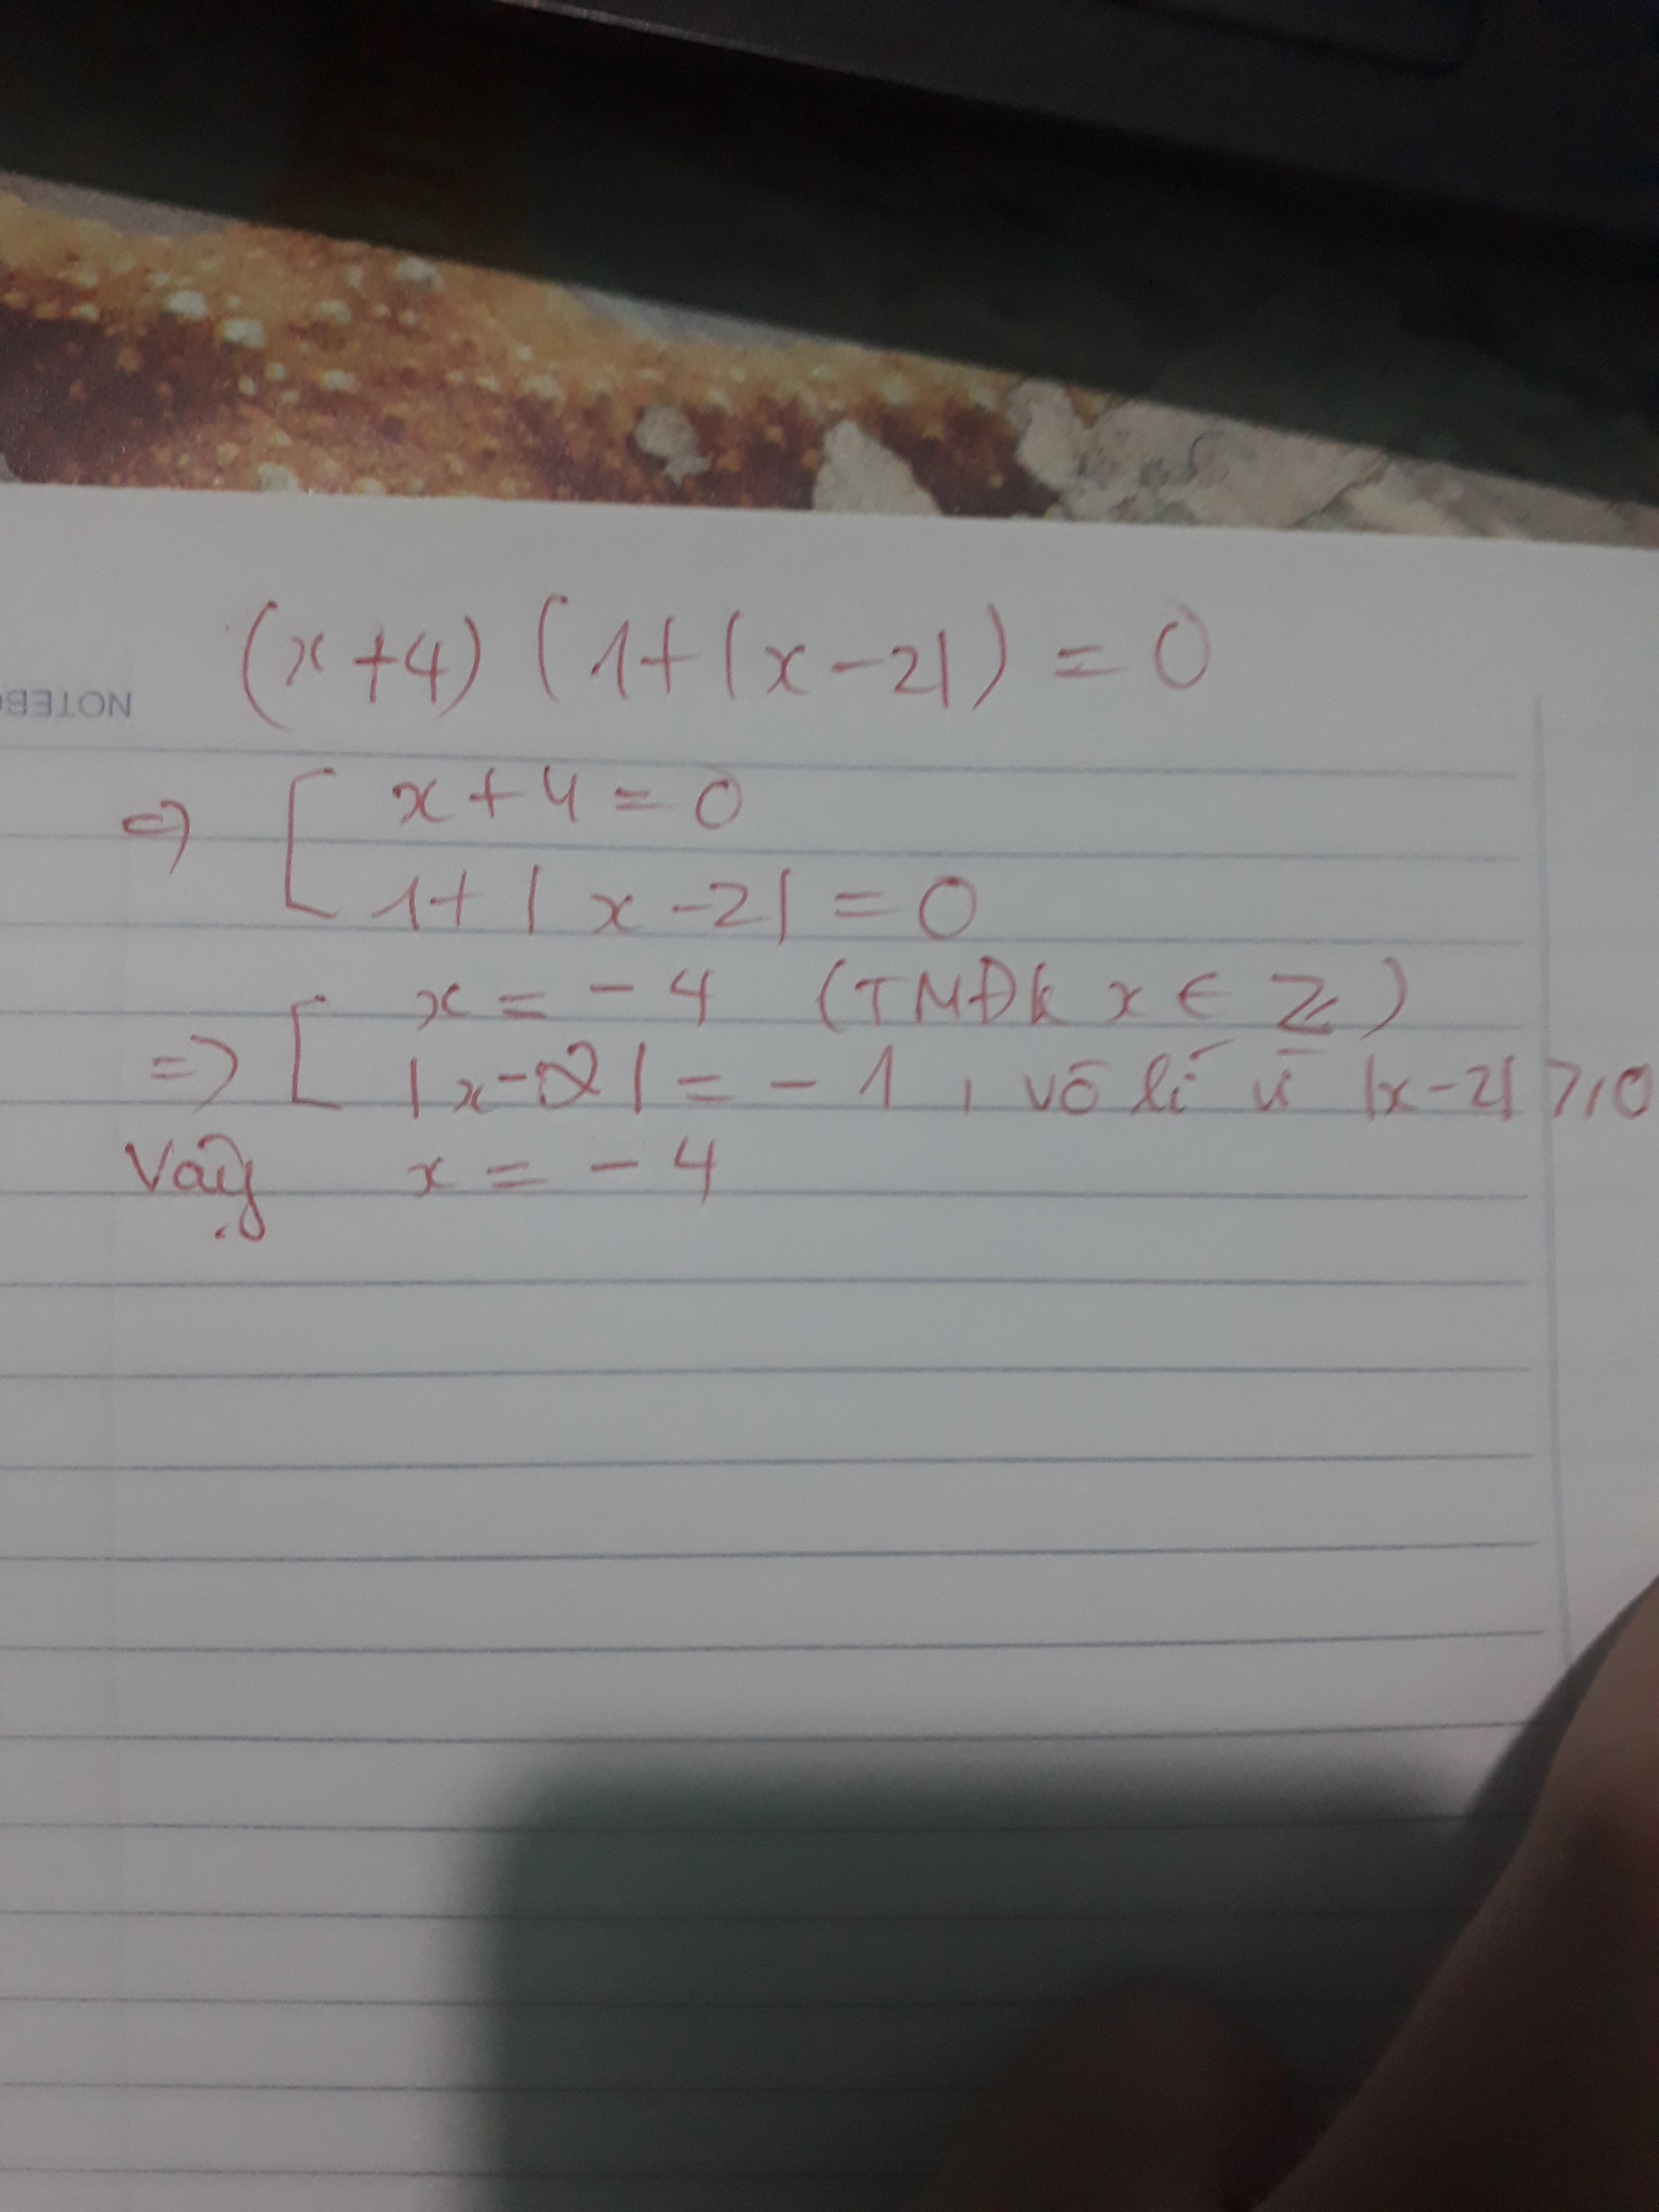 NOTEBO
(x+4) (1+|x-2|) = 0
=> [ x+4=0
1+|x-2|=0
=> [ x = -4 (TMĐk x ∈ Z)
|x-2| = -1, vô lí vì |x-2| ≥ 0
Vậy x = -4